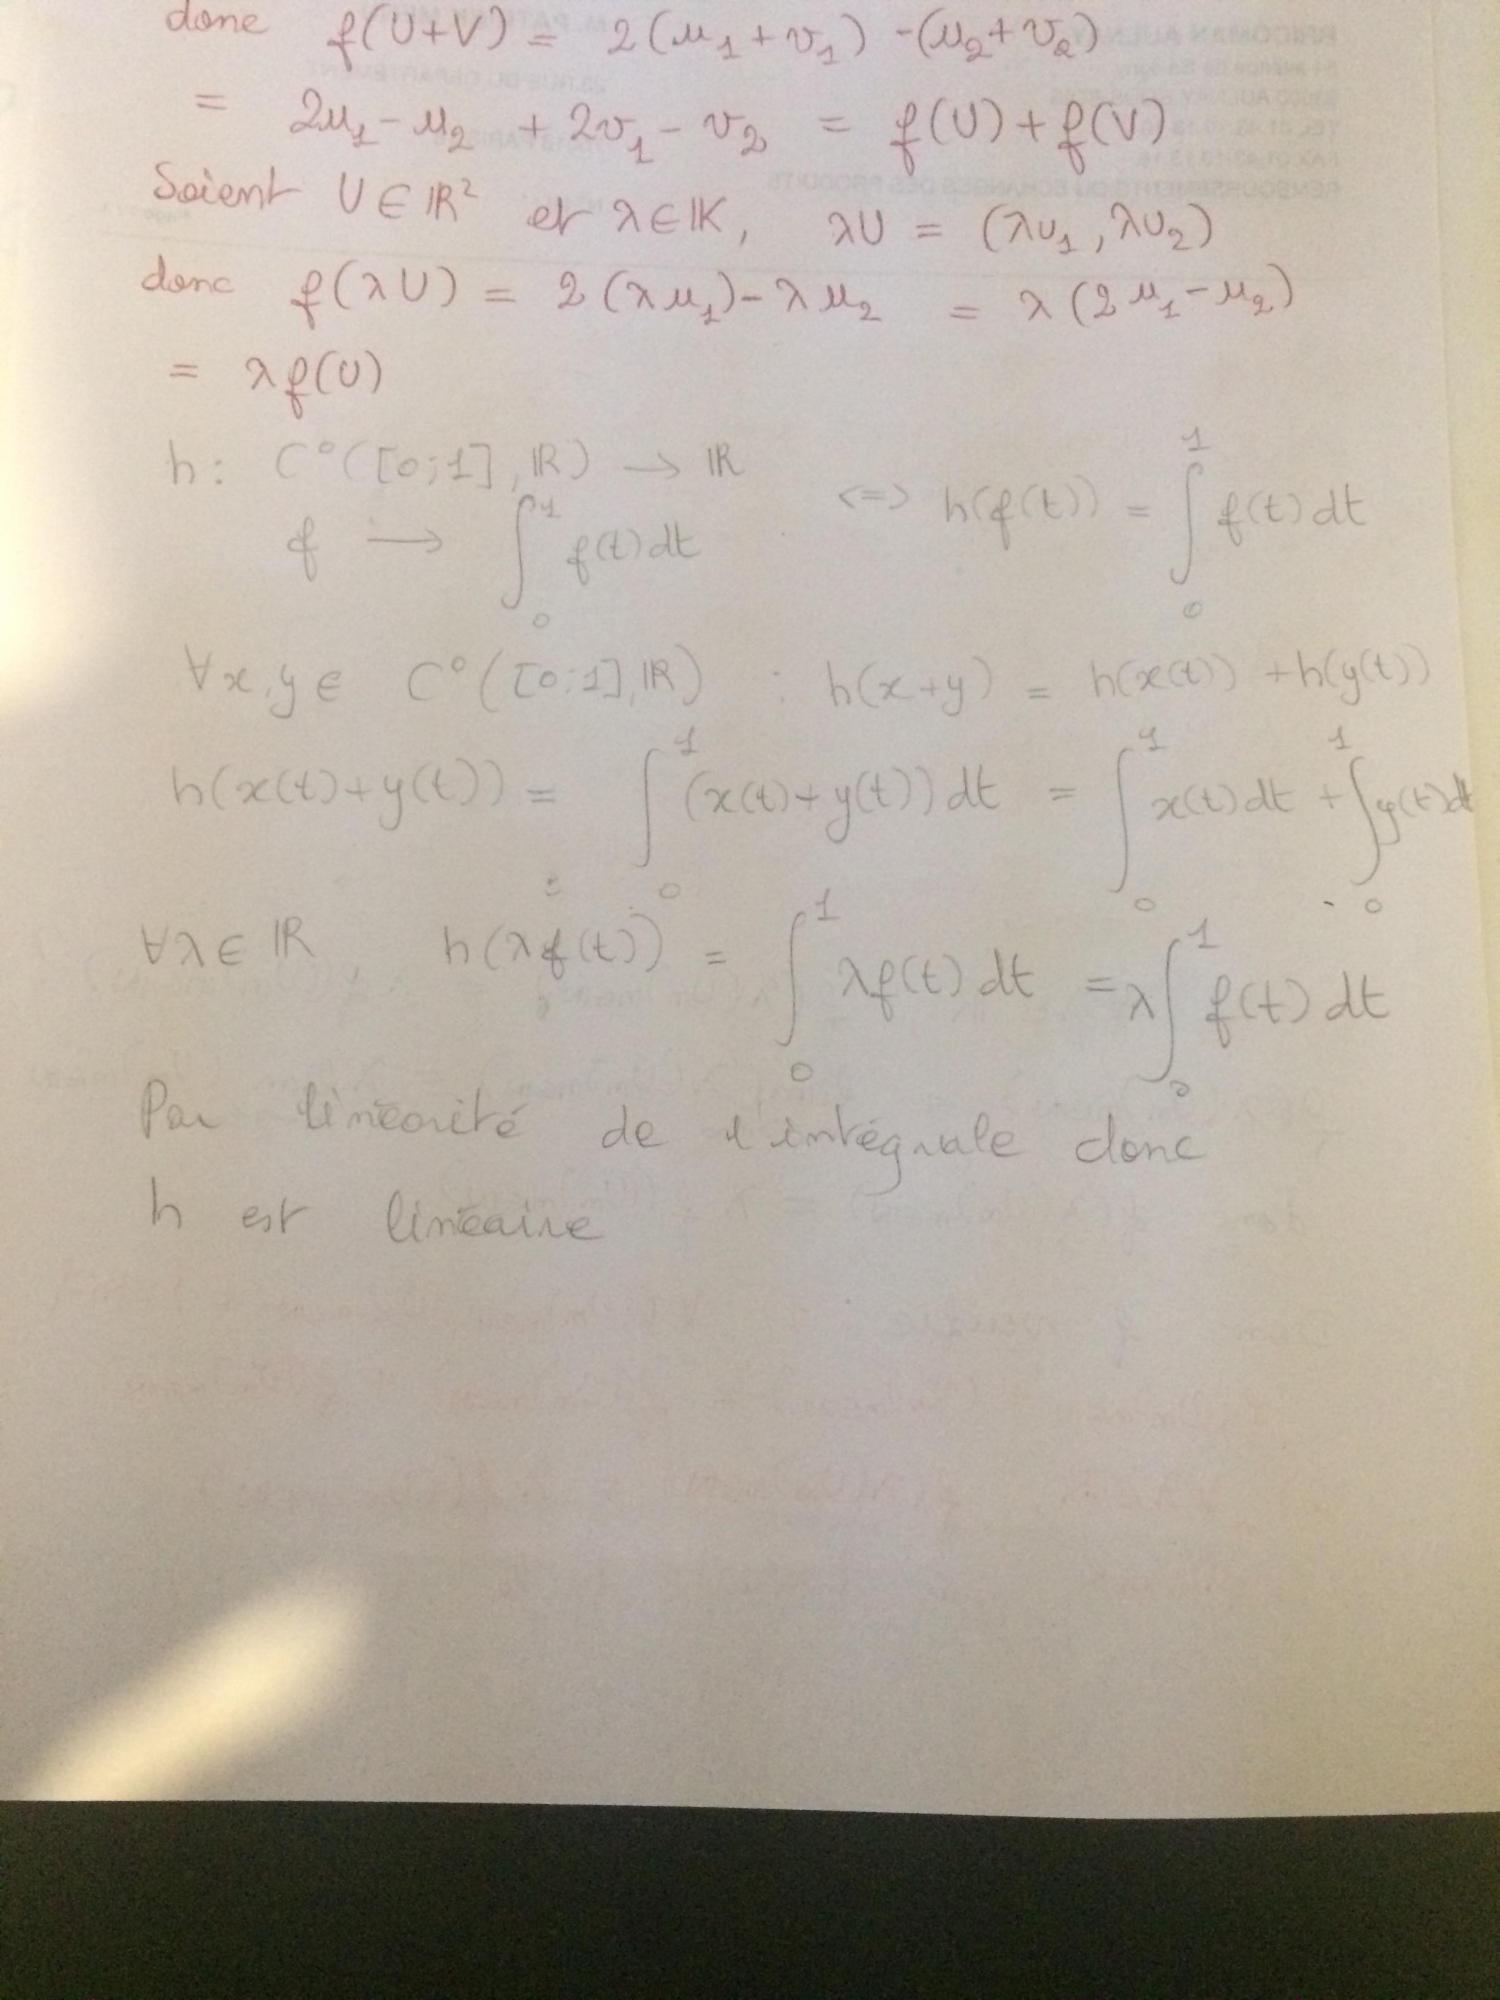 donc f(U+V) = 2(u₁+v₁) -(u₂+v₂)
= 2u₁-u₂ + 2v₁-v₂ = f(U)+f(V)
Soient U∈ℝ² et λ∈𝕂, λU = (λu₁,λu₂)
donc f(λU) = 2(λu₁)-λu₂ = λ(2u₁-u₂)
= λf(U)
h: C°([0;1],ℝ) → ℝ
f → ∫₀¹ f(t)dt <=> h(f(t)) = ∫₀¹ f(t)dt
∀x,y∈ C°([0;1],ℝ) : h(x+y) = h(x(t)) +h(y(t))
h(x(t)+y(t)) = ∫₀¹ (x(t)+y(t))dt = ∫₀¹ x(t)dt + ∫₀¹ y(t)dt
∀λ∈ℝ h(λf(t)) = ∫₀¹ λf(t)dt = λ∫₀¹ f(t)dt
Par linéarité de l'intégrale donc
h est linéaire